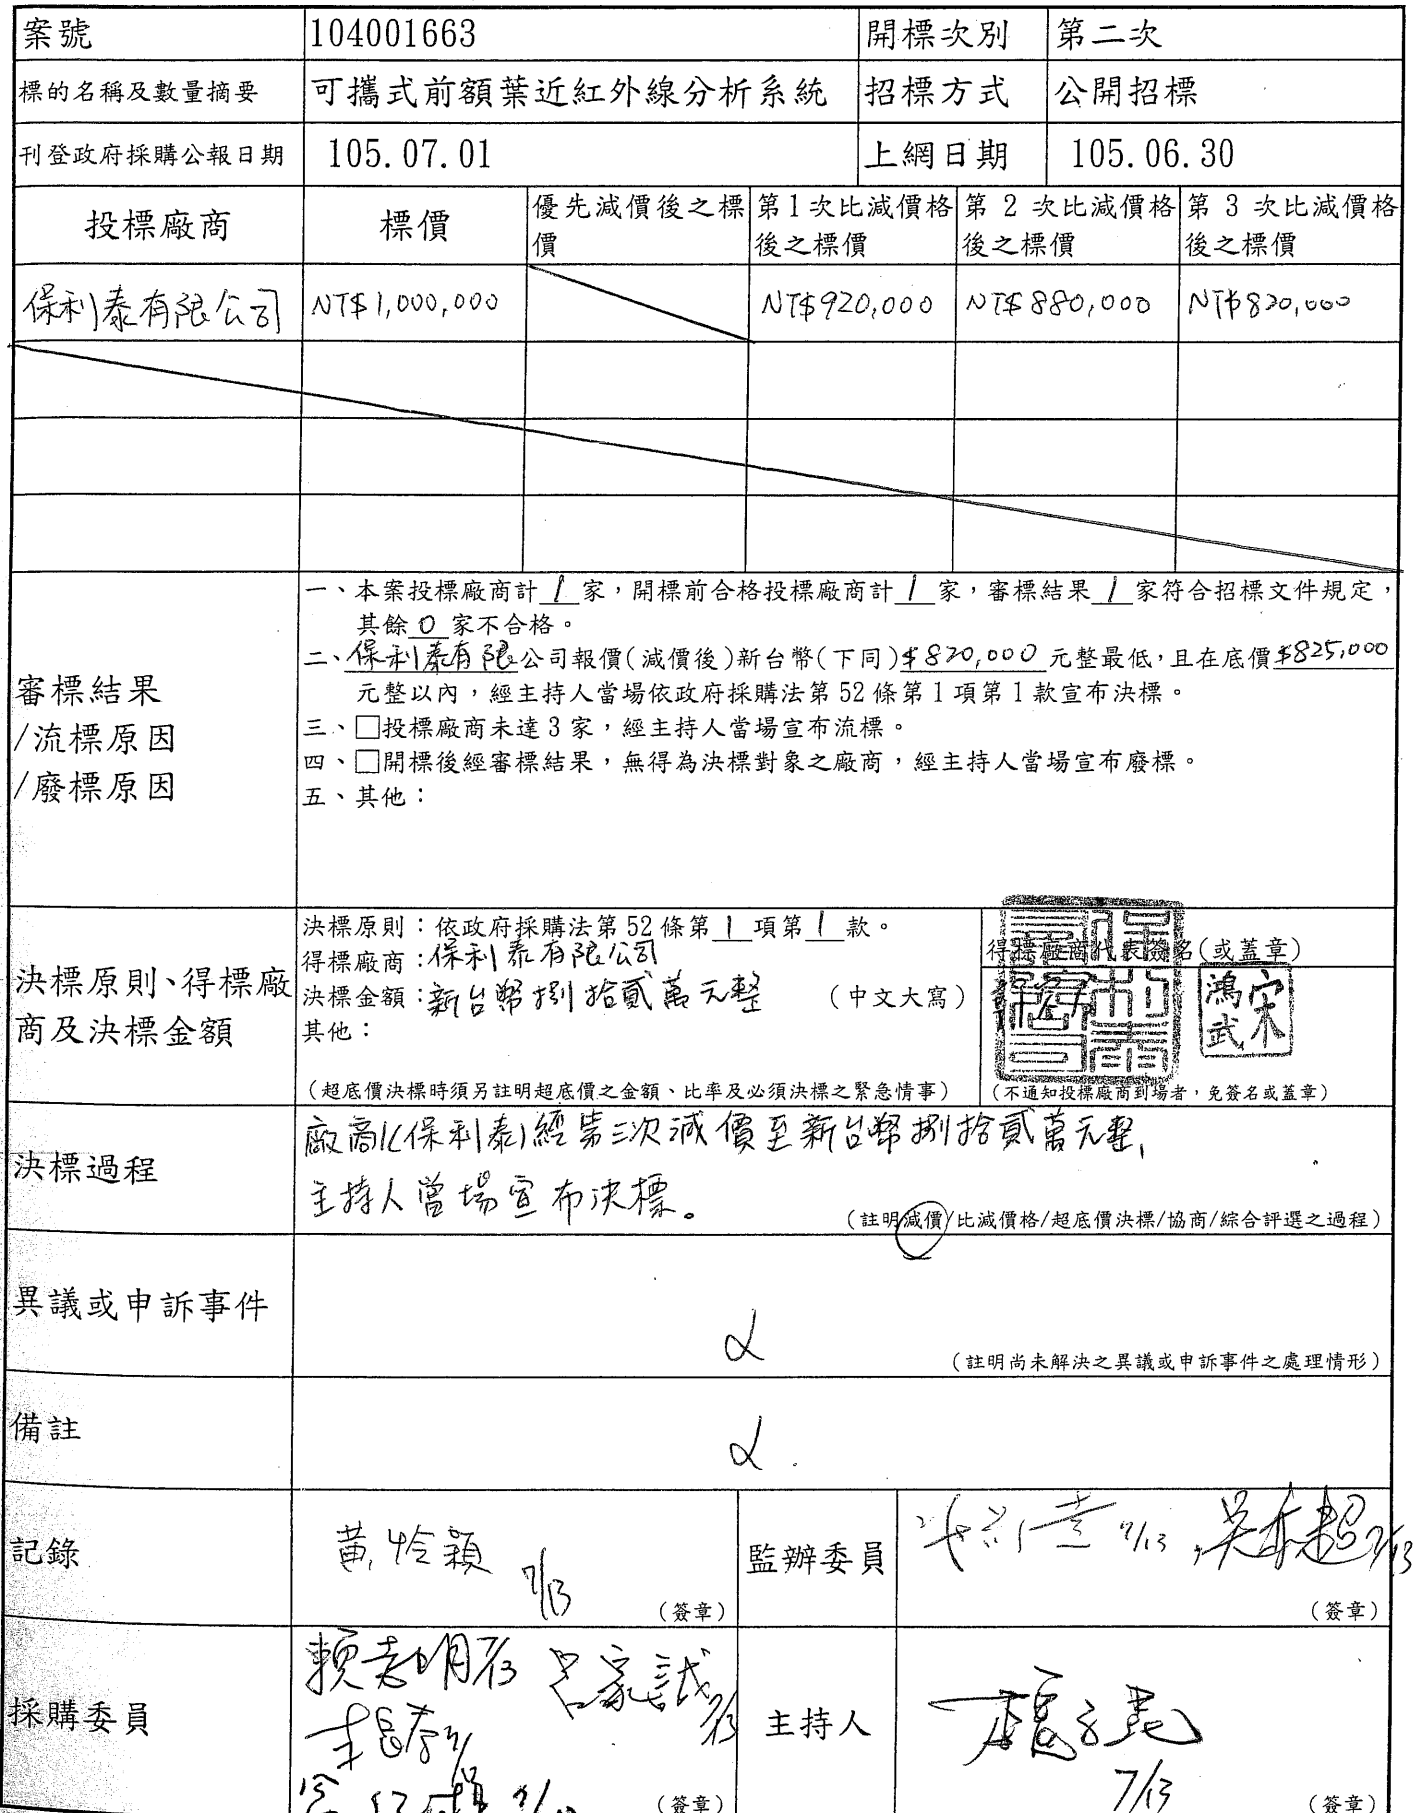 案號 104001663 開標次別 第二次
標的名稱及數量摘要 可攜式前額葉近紅外線分析系統 招標方式 公開招標
刊登政府採購公報日期 105.07.01 上網日期 105.06.30
投標廠商 標價 優先減價後之標價 第1次比減價格後之標價 第 2 次比減價格後之標價 第 3 次比減價格後之標價
保利泰有限公司 NT$1,000,000 NT$920,000 NT$880,000 NT$820,000
審標結果
/流標原因
/廢標原因
一、本案投標廠商計 1 家，開標前合格投標廠商計 1 家，審標結果 1 家符合招標文件規定，
其餘 0 家不合格。
二、保利泰有限公司報價(減價後)新台幣(下同)$820,000元整最低，且在底價$825,000
元整以內，經主持人當場依政府採購法第52條第1項第1款宣布決標。
三、□投標廠商未達3家，經主持人當場宣布流標。
四、□開標後經審標結果，無得為決標對象之廠商，經主持人當場宣布廢標。
五、其他：
決標原則、得標廠
商及決標金額
決標原則：依政府採購法第52條第 1 項第 1 款。
得標廠商：保利泰有限公司
決標金額：新台幣捌拾貳萬元整 (中文大寫)
其他：
(超底價決標時須另註明超底價之金額、比率及必須決標之緊急情事)
得標廠商代表簽名(或蓋章)
保利泰有限公司
宋鴻武
(不通知投標廠商到場者，免簽名或蓋章)
決標過程
廠商(保利泰)經第三次減價至新台幣捌拾貳萬元整,
主持人當場宣布決標。
(註明減價/比減價格/超底價決標/協商/綜合評選之過程)
異議或申訴事件
(註明尚未解決之異議或申訴事件之處理情形)
備註
記錄 黃怜穎 7/13 (簽章)
監辦委員 7/13 吳亦超 7/13 (簽章)
採購委員 7/13 呂家誠 7/13 (簽章)
主持人 7/13 (簽章)